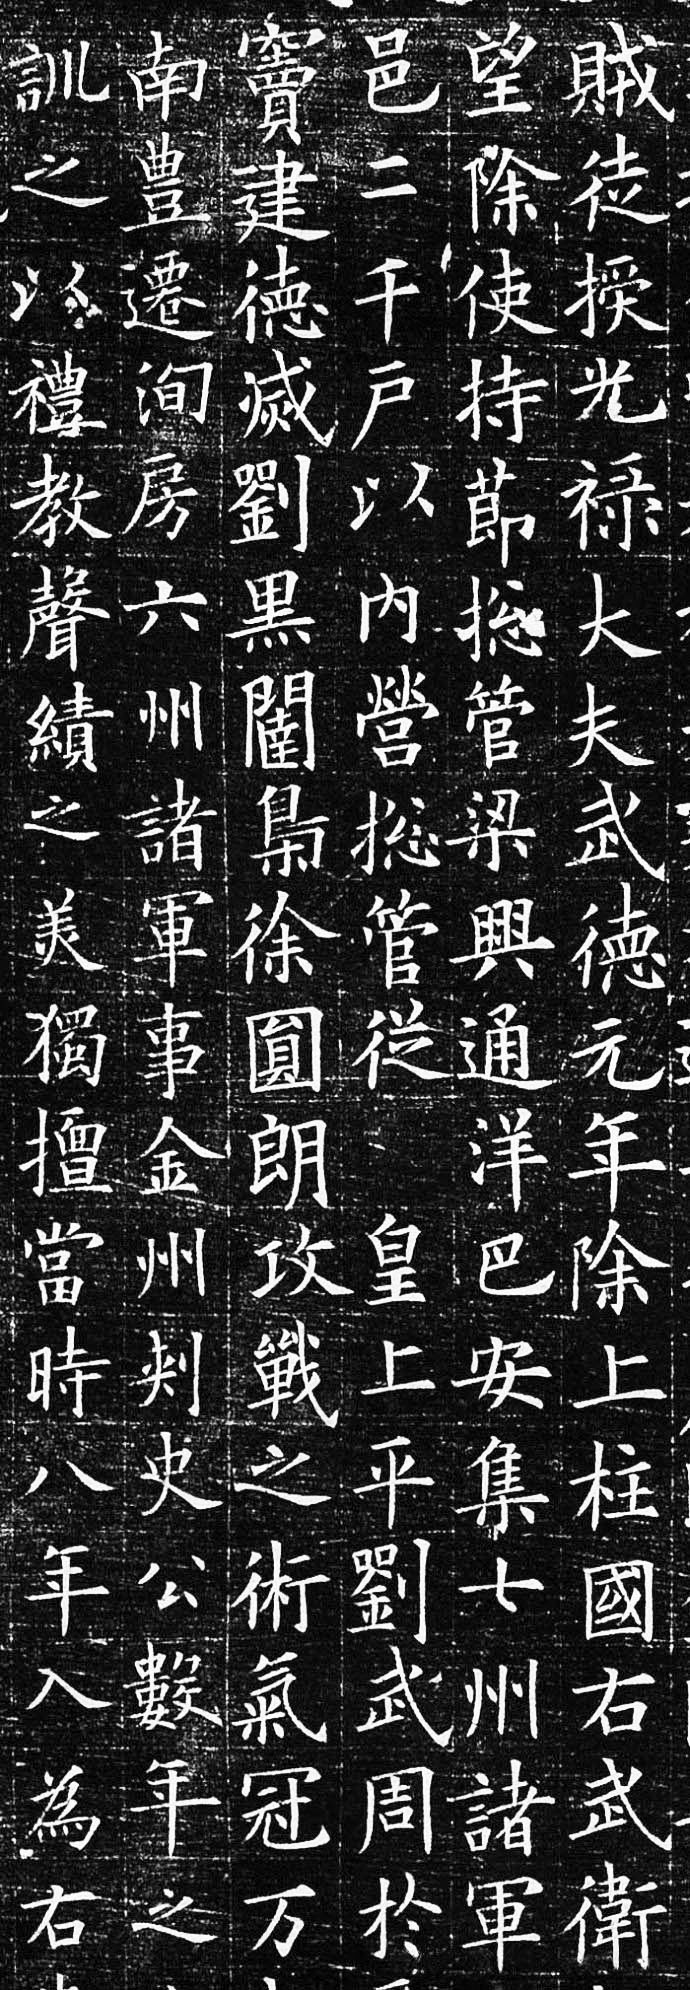 賊徒授光祿大夫武德元年除上柱國右武衛
望除使持節揔管梁興通洋巴安集七州諸軍
邑二千戶以內營揔管從皇上平劉武周於
竇建德滅劉黑闥梟徐圓朗攻戰之術氣冠万
南豊遷洵房六州諸軍事金州刺史公數年之
訓之以禮教聲績之美獨擅當時八年入為右